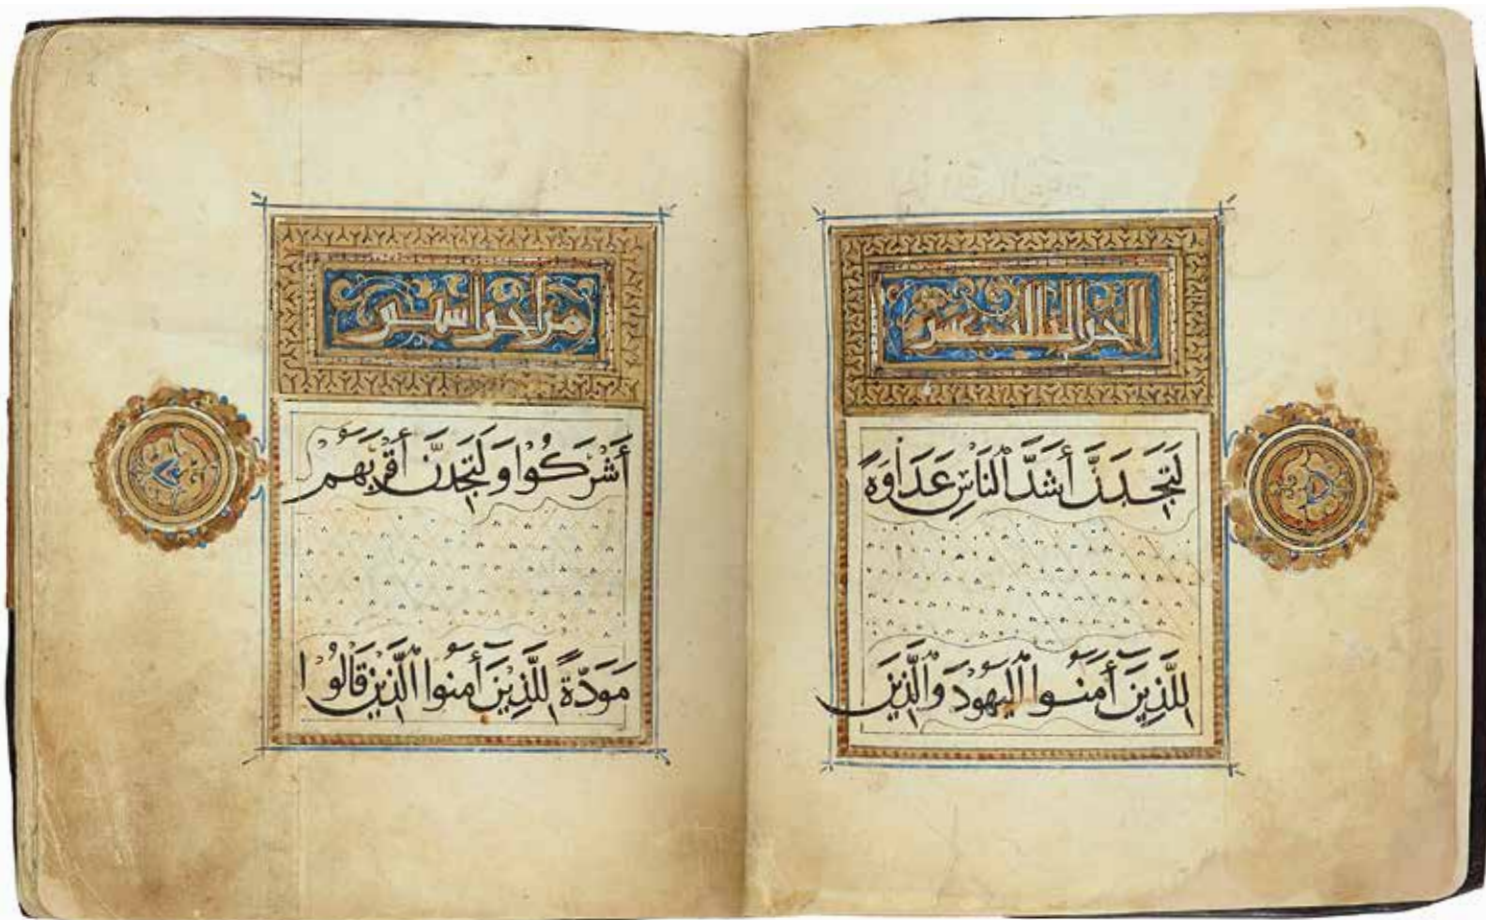 الجز الثالث عشر
لَتَجِدَنَّ أَشَدَّ ٱلنَّاسِ عَدَاوَةً
لِلَّذِينَ أَمَنُوا ٱلْيَهُودَ وَٱلَّذِينَ
من أجزا ستين
أَشْرَكُوا وَلَتَجِدَنَّ أَقْرَبَهُمْ
مَوَدَّةً لِلَّذِينَ أَمَنُوا ٱلَّذِينَ قَالُوا